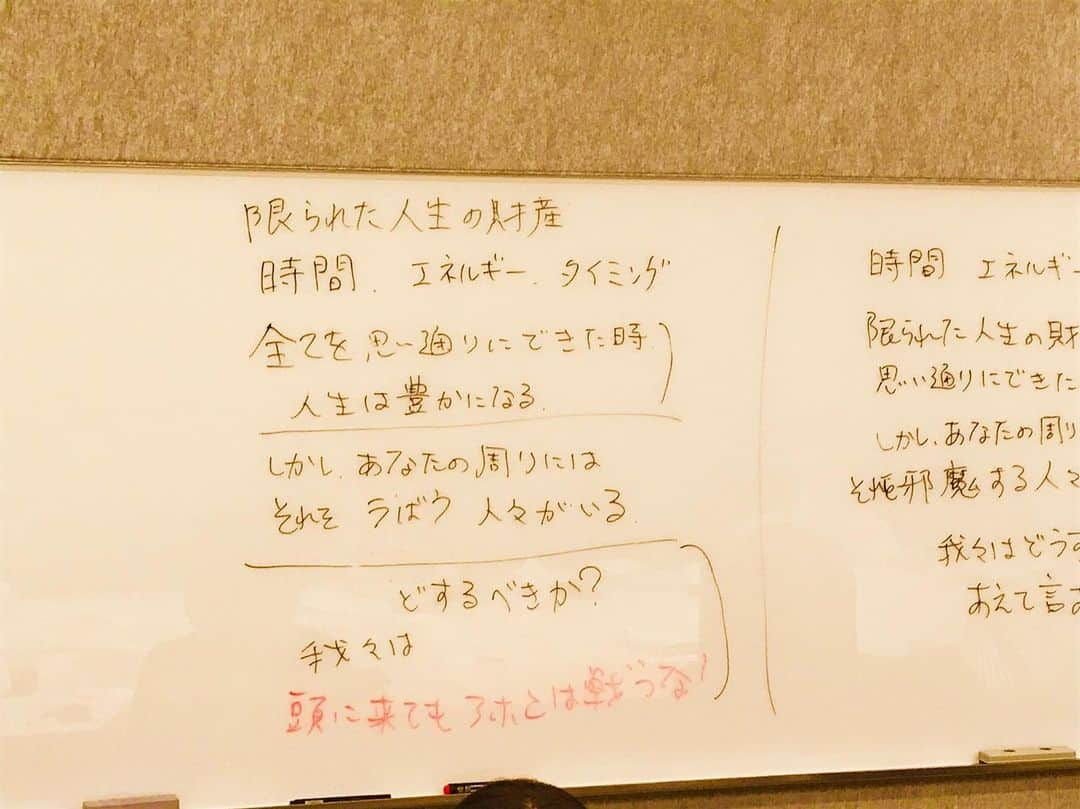 限られた人生の財産
時間、エネルギー、タイミング
全てを思い通りにできた時
人生は豊かになる。
しかし、あなたの周りには
それを うばう 人々がいる。
どするべきか?
我々は
頭に来てもアホとは戦うな!
時間 エネルギー
限られた人生の財
思い通りにできた
しかし、あなたの周り
それを邪魔する人々
我々はどうす
あえて言お